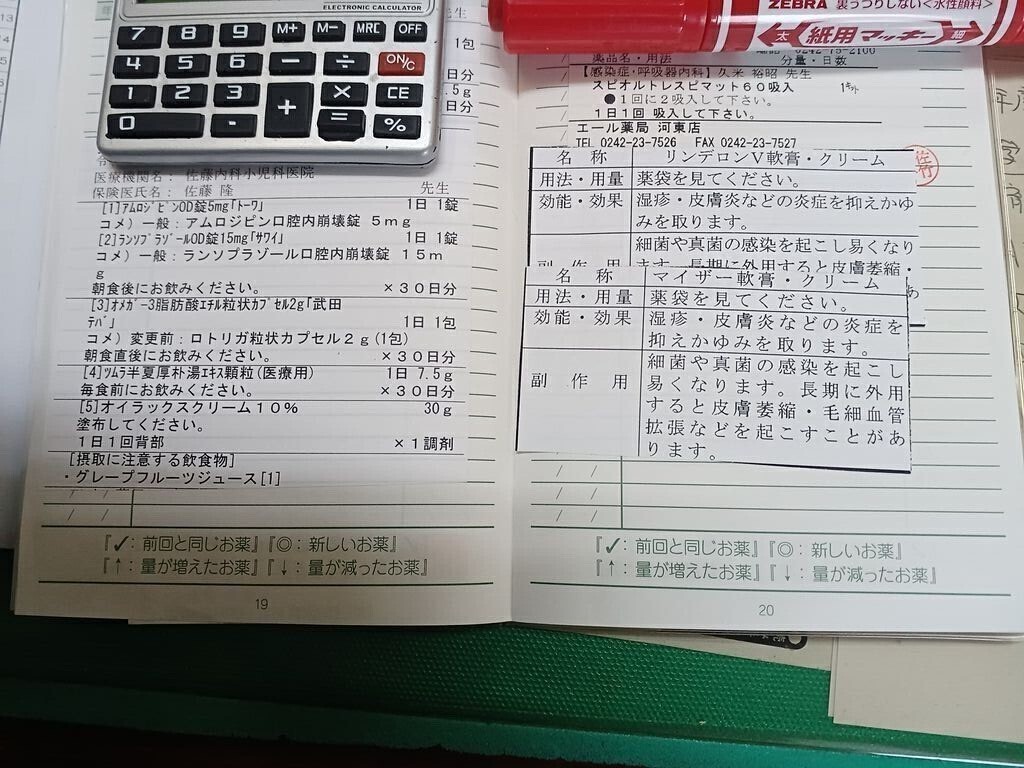 ELECTRONIC CALCULATOR
7 8 9 M+ M- MRC OFF
4 5 6 − ÷ ON/C
1 2 3 + × CE
0 . = %
先生
1包
日分
.5g
日分
医療機関名： 佐藤内科小児科医院
保険医氏名： 佐藤 隆 先生
[1]ｱﾑﾛｼﾞﾋﾟﾝOD錠5mg｢ﾄｰﾜ｣ 1日 1錠
コメ）一般：アムロジピン口腔内崩壊錠 ５ｍｇ
[2]ﾗﾝｿﾌﾟﾗｿﾞｰﾙOD錠15mg｢ｻﾜｲ｣ 1日 1錠
コメ）一般：ランソプラゾール口腔内崩壊錠 １５ｍ
ｇ
朝食後にお飲みください。 ×３０日分
[3]ｵﾒｶﾞ-3脂肪酸ｴﾁﾙ粒状ｶﾌﾟｾﾙ2g｢武田
ﾃﾊﾞ｣ 1日 1包
コメ）変更前：ロトリガ粒状カプセル２ｇ(1包)
朝食直後にお飲みください。 ×３０日分
[4]ﾂﾑﾗ半夏厚朴湯ｴｷｽ顆粒(医療用) 1日 7.5g
毎食前にお飲みください。 ×３０日分
[5]オイラックスクリーム１０％ 30g
塗布してください。
１日１回背部 ×１調剤
[摂取に注意する飲食物]
・グレープフルーツジュース[1]
『✓：前回と同じお薬』『◎：新しいお薬』
『↑：量が増えたお薬』『↓：量が減ったお薬』
19
ZEBRA 裏うつりしない<水性顔料>
太 紙用マッキー 細
0242-75-2100
薬品名・用法 分量・日数
【感染症・呼吸器内科】久米 裕昭 先生
スピオルトレスピマット６０吸入 1ｷｯﾄ
●１回に２吸入して下さい。
１日１回 吸入して下さい。
エール薬局 河東店
TEL 0242-23-7526 FAX 0242-23-7527
佐竹
名 称 リンデロンＶ軟膏・クリーム
用法・用量 薬袋を見てください。
効能・効果 湿疹・皮膚炎などの炎症を抑えかゆ
みを取ります。
細菌や真菌の感染を起こし易くなり
副 作 用 ます。長期に外用すると皮膚萎縮・
名 称 マイザー軟膏・クリーム
用法・用量 薬袋を見てください。
効能・効果 湿疹・皮膚炎などの炎症を
抑えかゆみを取ります。
副 作 用 細菌や真菌の感染を起こし
易くなります。長期に外用
すると皮膚萎縮・毛細血管
拡張などを起こすことがあ
ります。
『✓：前回と同じお薬』『◎：新しいお薬』
『↑：量が増えたお薬』『↓：量が減ったお薬』
20